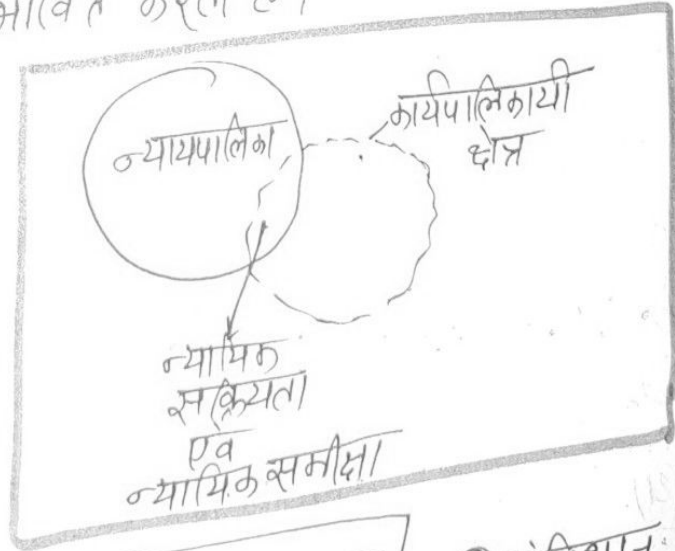 करता है।
न्यायपालिका
कार्यपालिकायी
क्षेत्र
न्यायिक
सक्रियता
एवं
न्यायिक समीक्षा